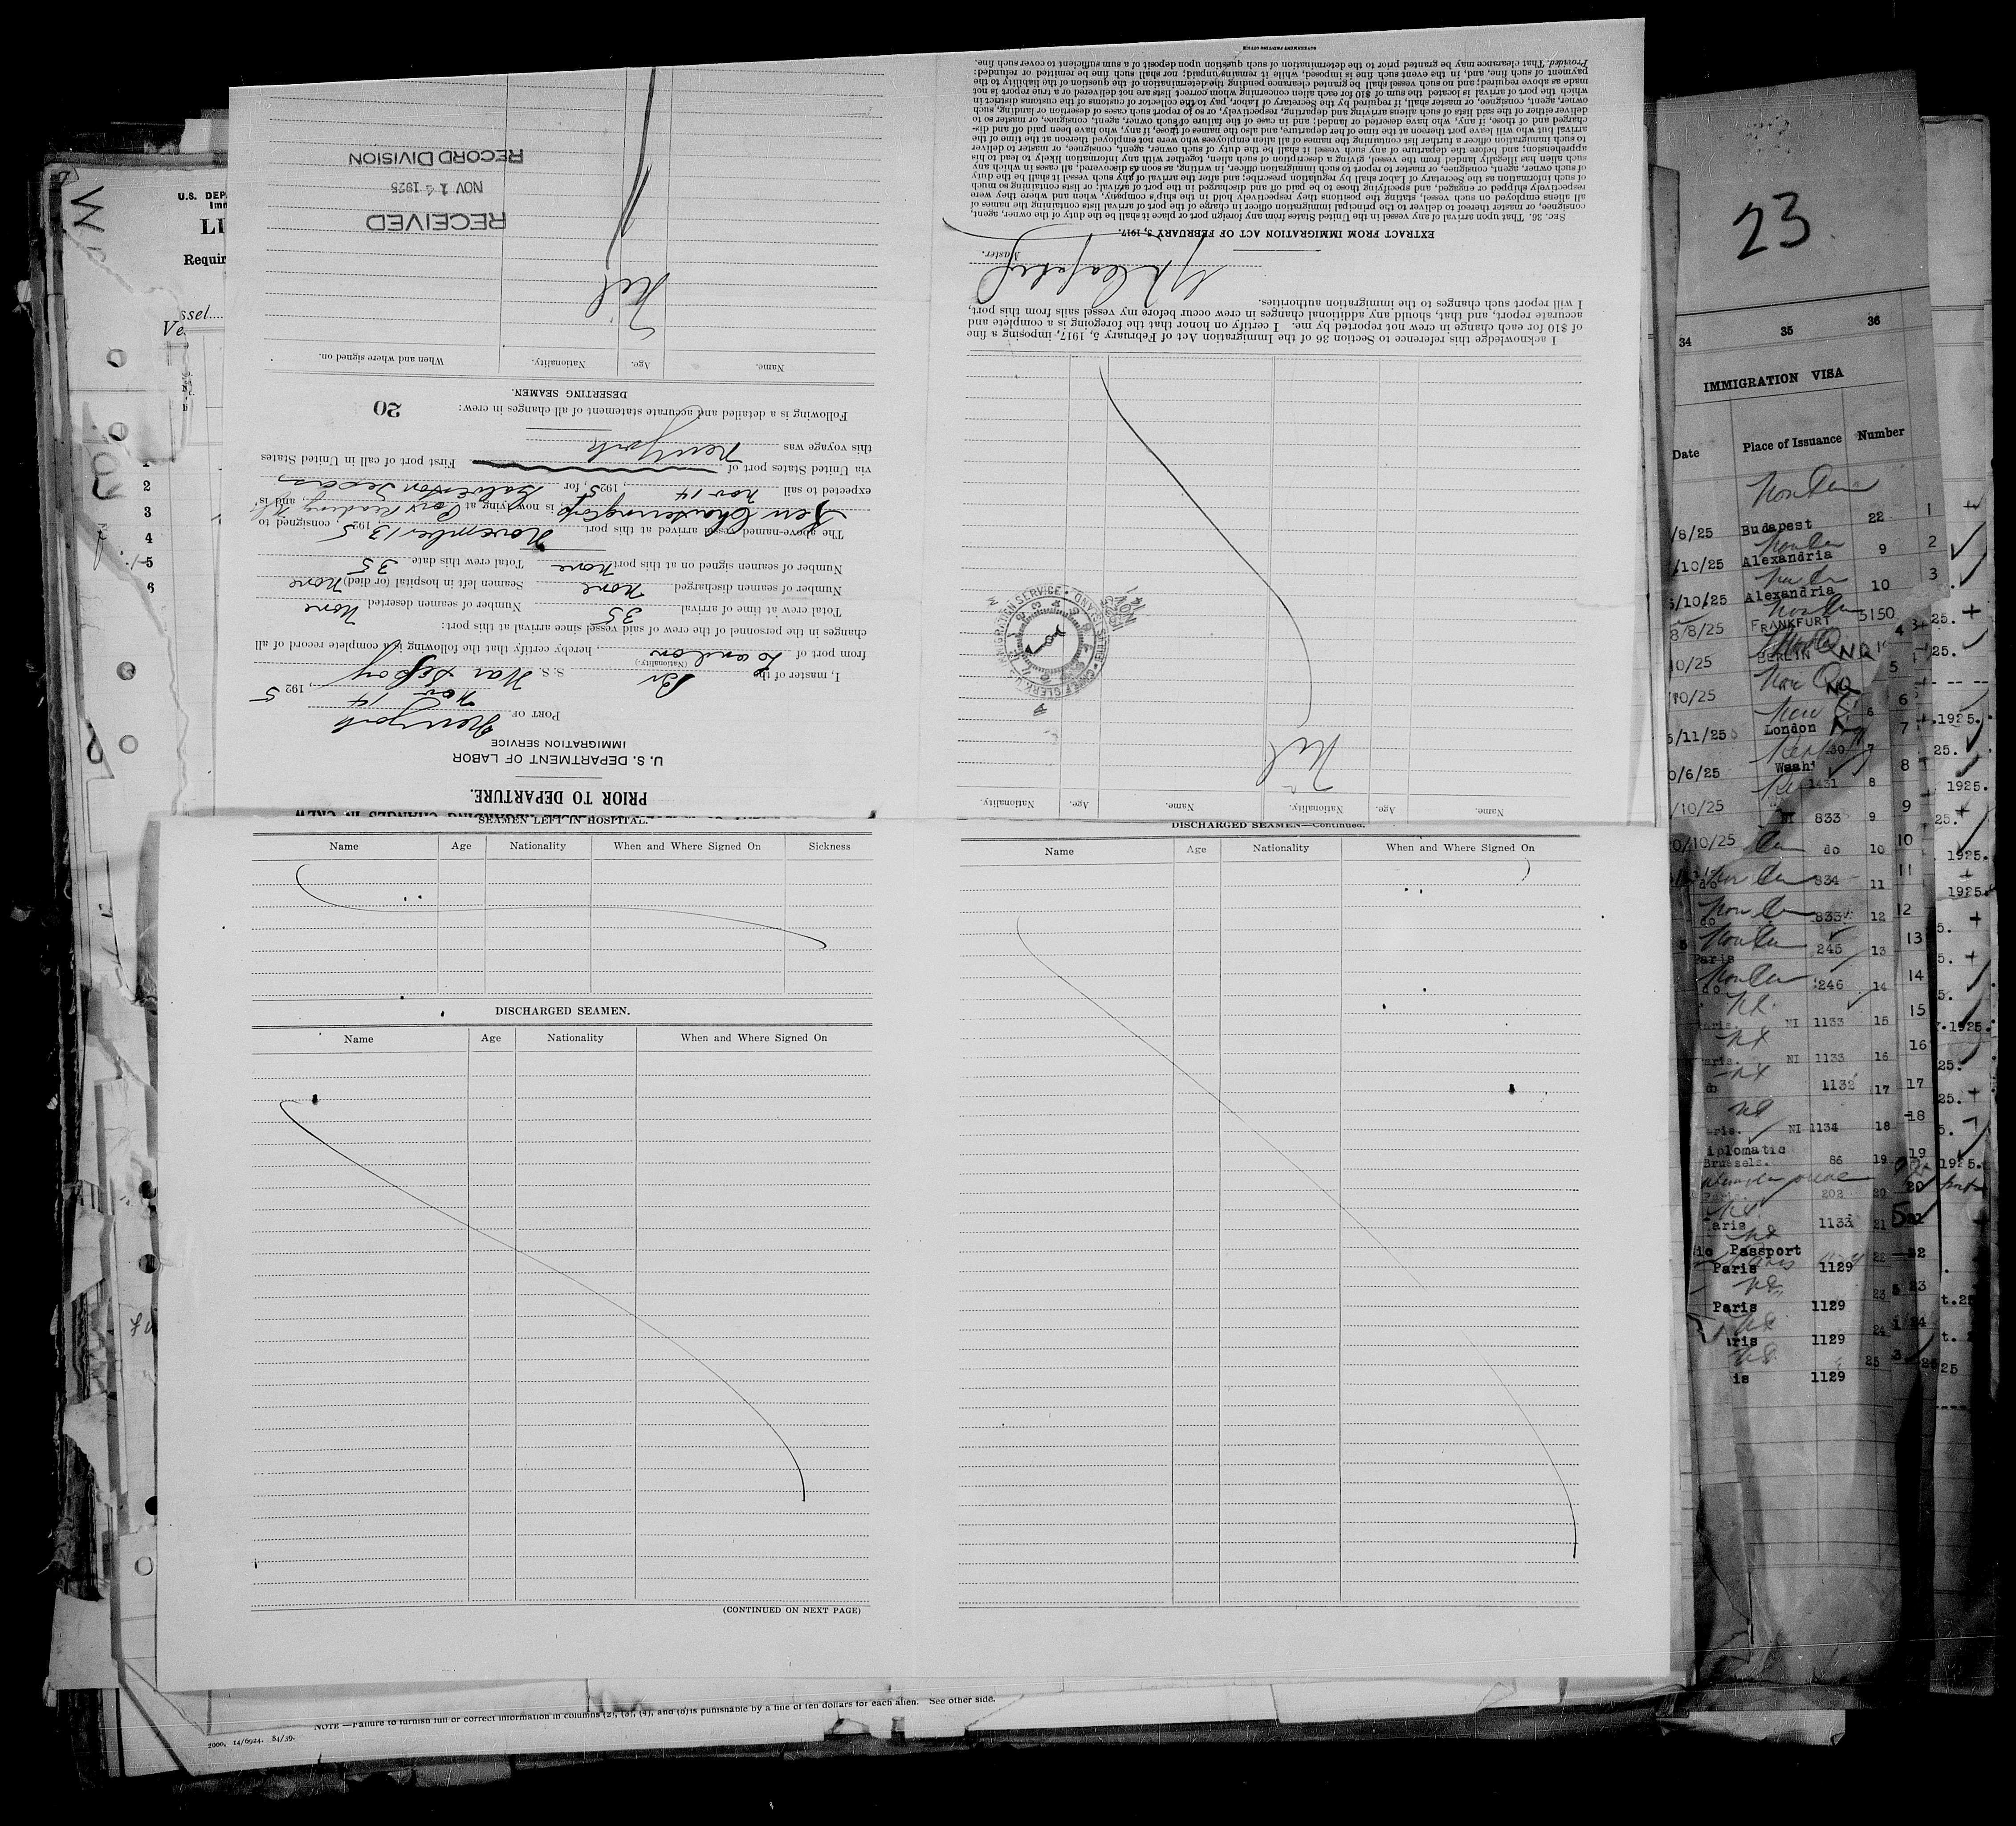 PRIOR TO DEPARTURE.
U. S. DEPARTMENT OF LABOR
IMMIGRATION SERVICE
PORT OF New York
Nov 14, 1925
I, master of the Br S. S. War Sepoy
(Nationality.)
from port of London hereby certify that the following is a complete record of all
changes in the personnel of the crew of said vessel since arrival at this port:
Total crew at time of arrival 35 Number of seamen deserted None
Number of seamen discharged None Seamen left in hospital (or died) None
Number of seamen signed on at this port None Total crew this date 35
The above-named vessel arrived at this port November 13, 1925, consigned to
Kerr Chartering Corp, is now lying at Port Reading NJ, and is
expected to sail Nov 14, 1925, for Galveston Texas
via United States port of First port of call in United States
this voyage was New York
Following is a detailed and accurate statement of all changes in crew: 20
DESERTING SEAMEN.
Name. Age. Nationality. When and where signed on.
Nil
RECEIVED
NOV 14 1925
RECORD DIVISION
Name. Age. Nationality. Name. Age. Nationality.
Nil
IMMIGRATION SERVICE
NOV 14 1925
I acknowledge this reference to Section 36 of the Immigration Act of February 5, 1917, imposing a fine
of $10 for each change in crew not reported by me. I certify on honor that the foregoing is a complete and
accurate report, and that, should any additional changes in crew occur before my vessel sails from this port,
I will report such changes to the immigration authorities.
Master.
EXTRACT FROM IMMIGRATION ACT OF FEBRUARY 5, 1917.
SEC. 36. That upon arrival of any vessel in the United States from any foreign port or place it shall be the duty of the owner, agent,
consignee, or master thereof to deliver to the principal immigration officer in charge of the port of arrival lists containing the names of
all aliens employed on such vessel, stating the positions they respectively hold in the ship's company, when and where they were
respectively shipped or engaged, and specifying those to be paid off and discharged in the port of arrival; or lists containing so much
of such information as the Secretary of Labor shall by regulation prescribe; and after the arrival of any such vessel it shall be the duty
of such owner, agent, consignee, or master to report to such immigration officer, in writing, as soon as discovered, all cases in which any
such alien has illegally landed from the vessel, giving a description of such alien, together with any information likely to lead to his
apprehension; and before the departure of any such vessel it shall be the duty of such owner, agent, consignee, or master to deliver
to such immigration officer a further list containing the names of all alien employees who were not employed thereon at the time of the
arrival but who will leave port thereon at the time of her departure, and also the names of those, if any, who have been paid off and dis-
charged and of those, if any, who have deserted or landed; and in case of the failure of such owner, agent, consignee, or master so to
deliver either of the said lists of such aliens arriving and departing, respectively, or so to report such cases of desertion or landing, such
owner, agent, consignee, or master, shall, if required by the Secretary of Labor, pay to the collector of customs of the customs district in
which the port of arrival is located the sum of $10 for each alien concerning whom correct lists are not delivered or a true report is not
made as above required; and no such vessel shall be granted clearance pending the determination of the question of the liability to the
payment of such fine, and, in the event such fine is imposed, while it remains unpaid; nor shall such fine be remitted or refunded:
Provided, That clearance may be granted prior to the determination of such question upon deposit of a sum sufficient to cover such fine.
GOVERNMENT PRINTING OFFICE
SEAMEN LEFT IN HOSPITAL.
Name Age Nationality When and Where Signed On Sickness
DISCHARGED SEAMEN.
Name Age Nationality When and Where Signed On
(CONTINUED ON NEXT PAGE)
DISCHARGED SEAMEN—Continued.
Name Age Nationality When and Where Signed On
NOTE —Failure to furnish full or correct information in columns (2), (3), (4), and (6) is punishable by a fine of ten dollars for each alien. See other side.
2000, 14/6924. 84/39.
U.S. DEP
LI
Requir
1
2
3
4
5
6
23
34 35 36
IMMIGRATION VISA
Date Place of Issuance Number
/8/25 Budapest 22 1
/10/25 Alexandria 9 2
/10/25 Alexandria 10 3
8/8/25 FRANKFURT 5150 4
10/25 BERLIN NQ 5
/10/25 NQ 6
/11/25 London 7
0/6/25 Wash' 30 7 8
/10/25 1431 8 9
0/10/25 NI 833 9
do 10
do 834 11
do 833 12
Paris 245 13
do 246 14
aris. NI 1133 15
aris. NI 1133 16
do 1132 17
aris. NI 1134 18
iplomatic
Brussels. 86 19
Paris. 202 20
aris 1133 21
ic Passport
Paris 1129 22
Paris 1129 23
ris 1129 24
is 1129 25